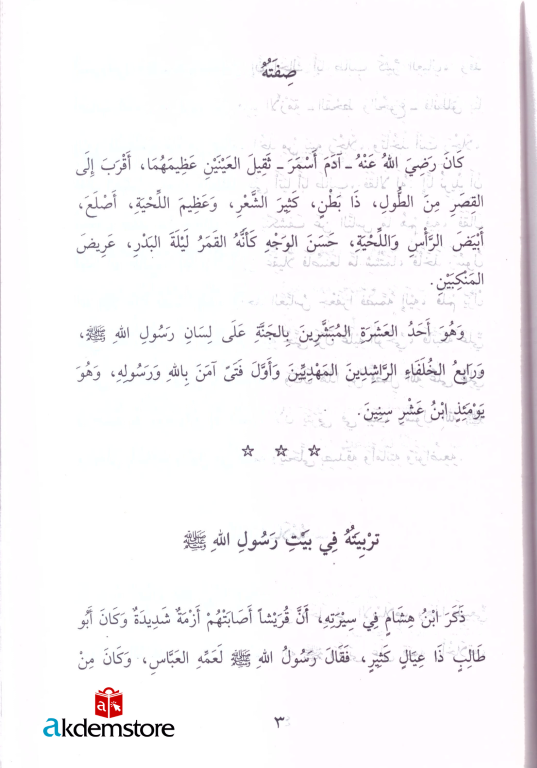 صِفَتُهُ
كَانَ رَضِيَ اللهُ عَنْهُ ـ آدَمَ أَسْمَرَ ـ ثَقِيلَ العَيْنَيْنِ عَظِيمَهُمَا، أَقْرَبَ إِلَى
القِصَرِ مِنَ الطُّولِ، ذَا بَطْنٍ، كَثِيرَ الشَّعْرِ، وَعَظِيمَ اللِّحْيَةِ، أَصْلَعَ،
أَبْيَضَ الرَّأْسِ وَاللِّحْيَةِ، حَسَنَ الوَجْهِ كَأَنَّهُ القَمَرُ لَيْلَةَ البَدْرِ، عَرِيضَ
المَنْكِبَيْنِ.
وَهُوَ أَحَدُ العَشَرَةِ المُبَشَّرِينَ بِالجَنَّةِ عَلَى لِسَانِ رَسُولِ اللهِ ﷺ،
وَرَابِعُ الخُلَفَاءِ الرَّاشِدِينَ المَهْدِيِّينَ وَأَوَّلَ فَتَىً آمَنَ بِاللهِ وَرَسُولِهِ، وَهُوَ
يَوْمَئِذٍ ابْنُ عَشْرِ سِنِينَ.
☆ ☆ ☆
تَرْبِيَتُهُ فِي بَيْتِ رَسُولِ اللهِ ﷺ
ذَكَرَ ابْنُ هِشَامٍ فِي سِيْرَتِهِ، أَنَّ قُرَيْشاً أَصَابَتْهُمْ أَزْمَةٌ شَدِيدَةٌ وَكَانَ أَبُو
طَالِبٍ ذَا عِيَالٍ كَثِيرٍ، فَقَالَ رَسُولُ اللهِ ﷺ لَعَمِّهِ العَبَّاسِ، وَكَانَ مِنْ
٣
akdemstore